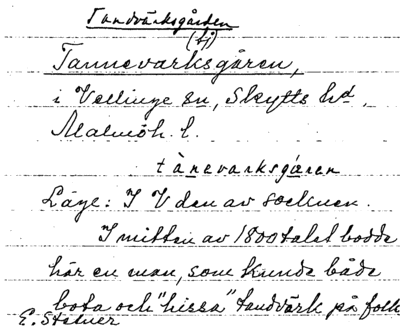 Tandvärksgården
(bj)
Tannevarksgåren,
i Vellinge sn, Skytts hd,
Malmöh. l.
tànevarksgåren
Läge: I V den av socknen.
I mitten av 1800talet bodde
här en man, som kunde både
bota och "hissa" tandvärk på folk
E. Statner